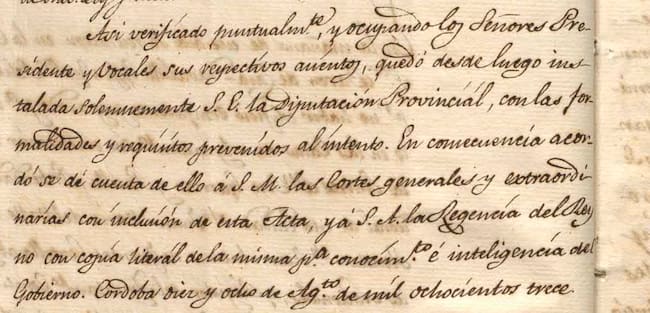 Asi verificado puntualm.te, y ocupando los Señores Pre-
sidente y Vocales sus respectivos asientos, quedó desde luego ins
talada solennemente S. E. la Diputación Provinciál, con las for-
malidades y requisitos prevenidos al intento. En consecuencia acor-
dó se dé cuenta de ello á S. M. las Cortes generales y extraordi-
narias con inclusión de esta Acta, y á S. A. la Regencia del Rey
no con copia literál de la misma p.a conocim.to é inteligencia del
Gobierno. Cordoba diez y ocho de Ag.to de mil ochocientos trece.